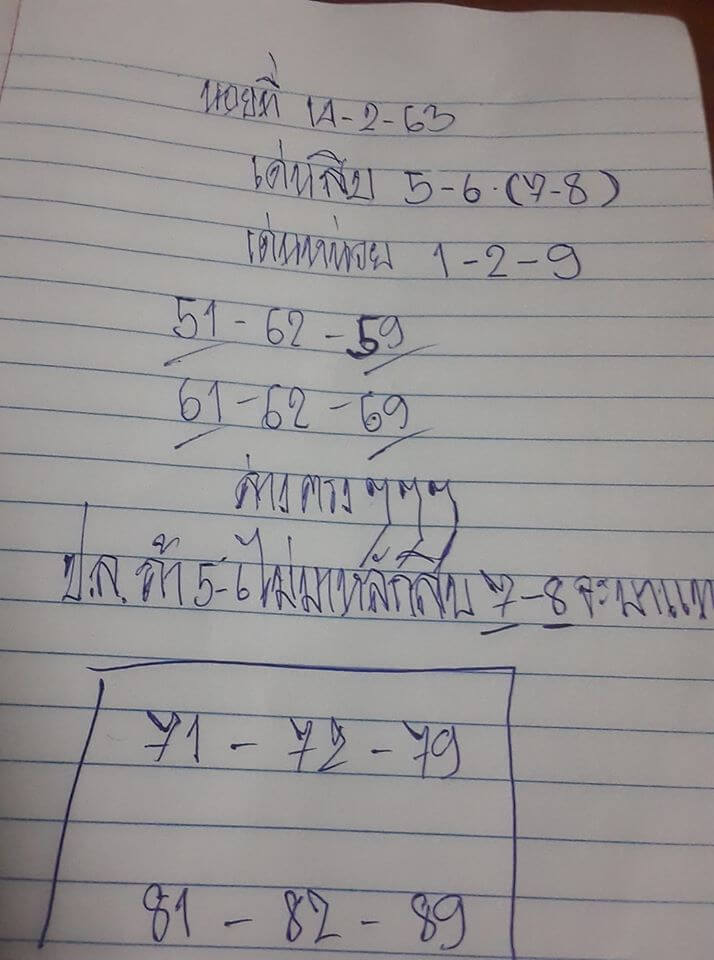 นอยที่ 14-2-63
เด่นสิบ 5-6.(7-8)
เด่นหน่วย 1-2-9
51-62-59
61-62-69
ล่างตรงๆๆๆ
ป.ล. ถ้า 5-6 ไม่มาหลักสิบ 7-8 จะมาแท
71 - 72 - 79
81 - 82 - 89